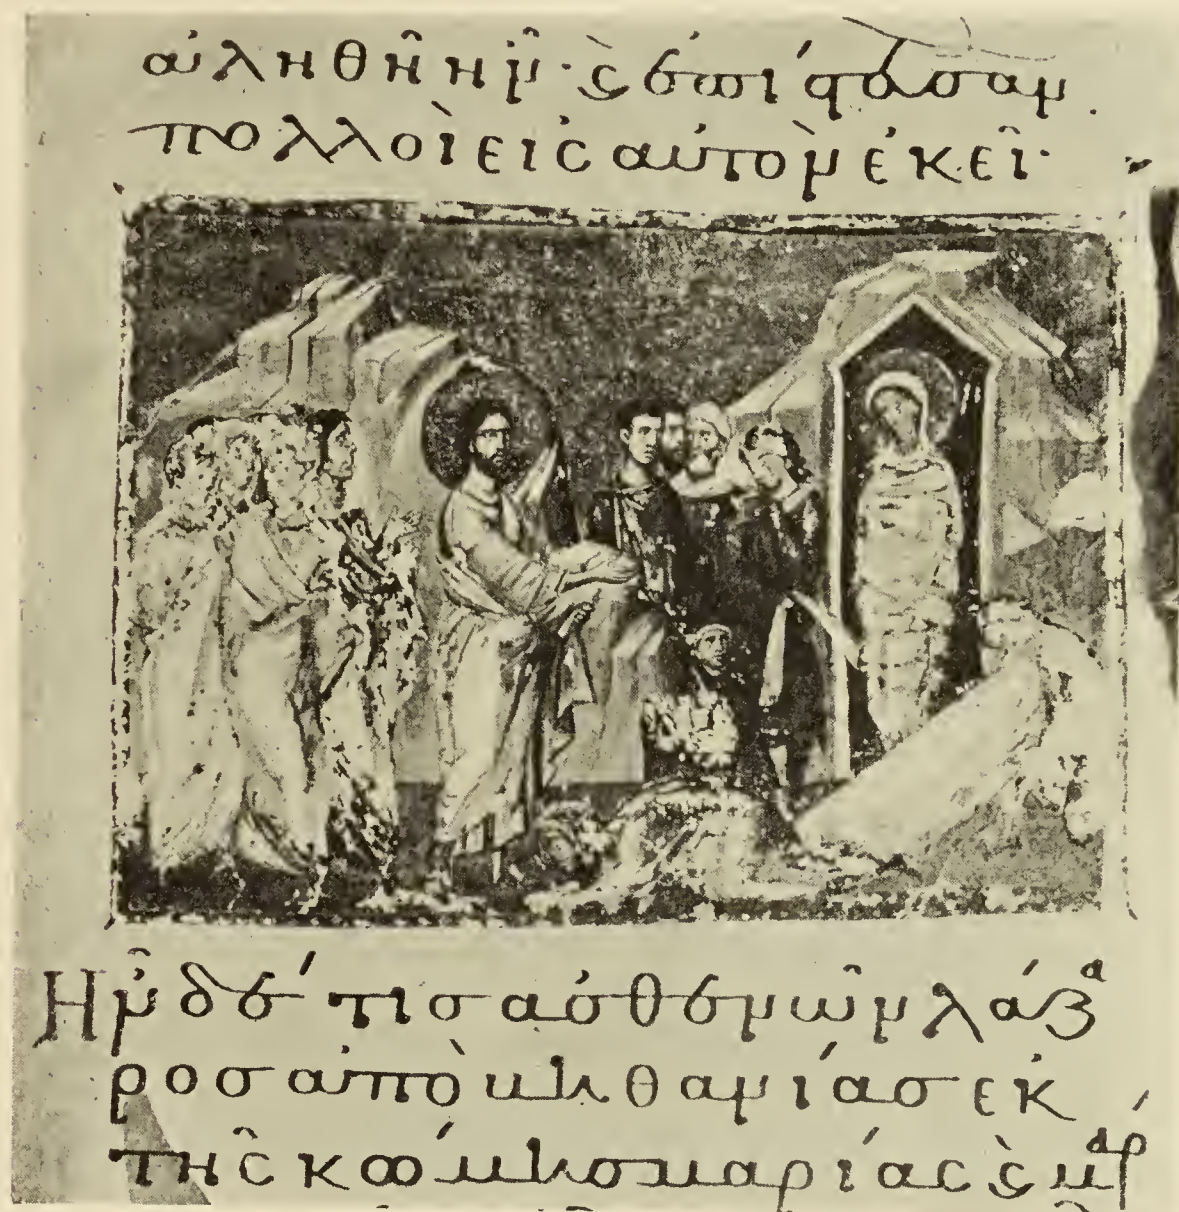 ἀληθῆ ἦν· ϗ ἐπίστευσαν
πολλοὶ εἰς αὐτὸν ἐκεῖ·
Ἦν δέ τις ἀσθενῶν λάζα
ρος ἀπὸ βηθανίας ἐκ
τῆς κώμης μαρίας ϗ μαρ